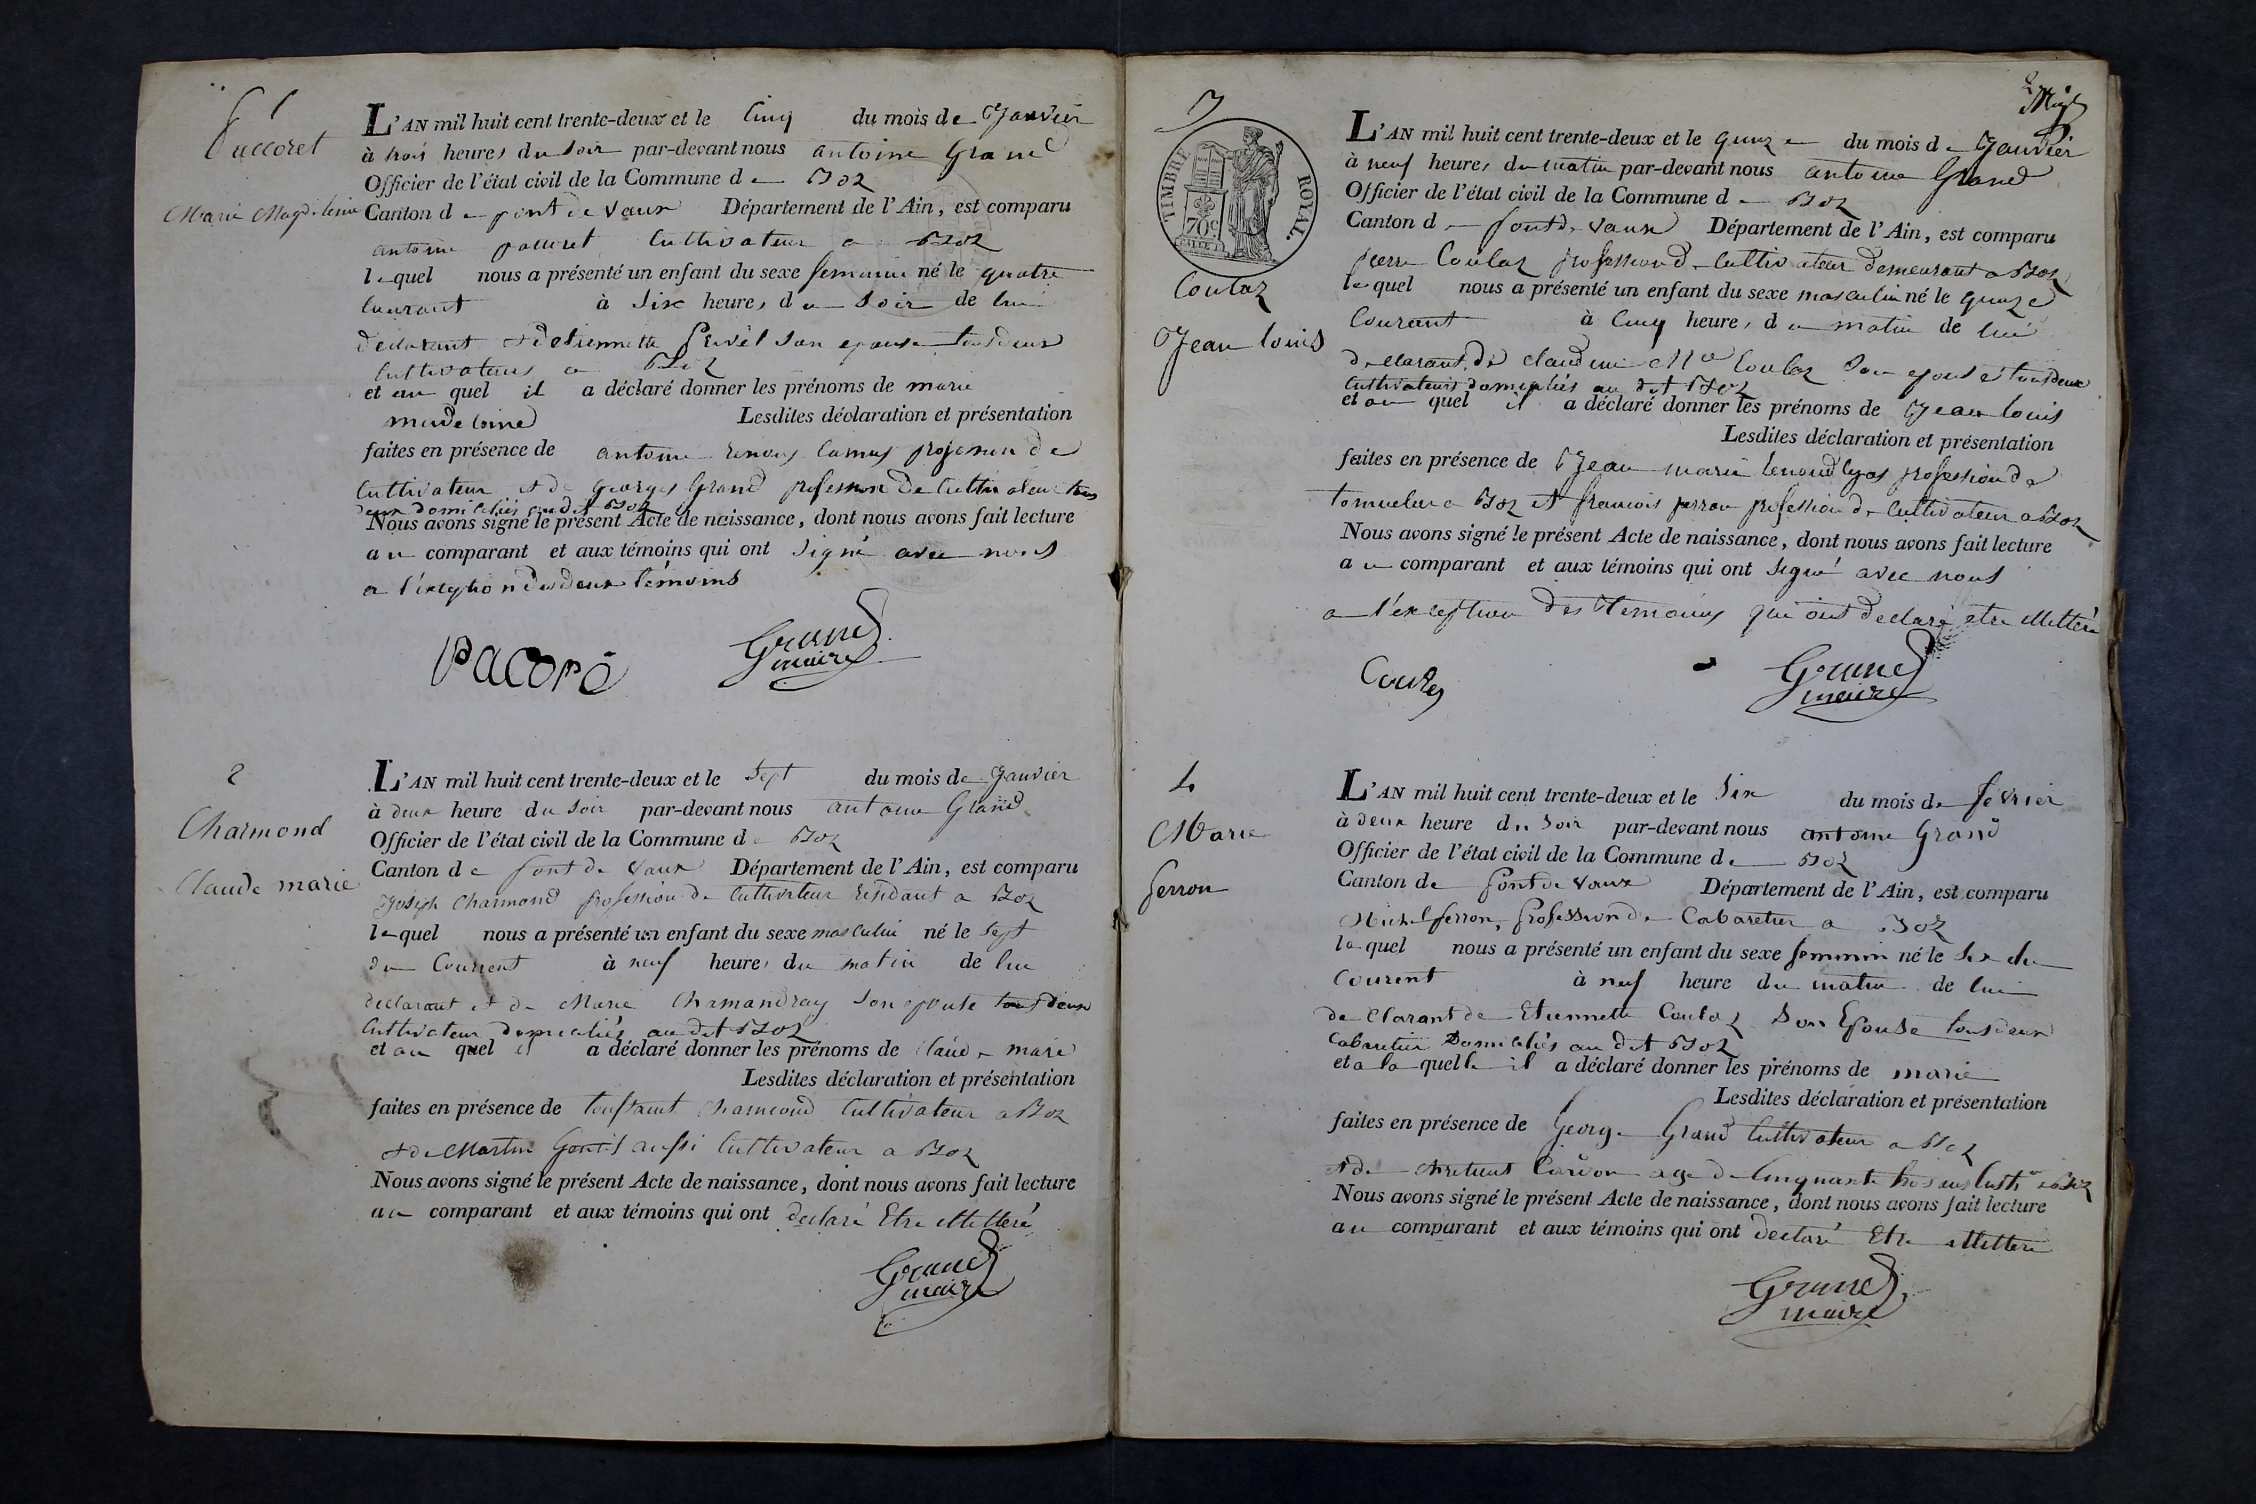 1
Paccoret
Marie Magdeleine
L'AN mil huit cent trente-deux et le Cinq du mois de Janvier
à trois heures du soir par-devant nous antoine Grand
Officier de l'état civil de la Commune de Boz
Canton de pont de vaux Département de l'Ain, est comparu
antoine paccoret Cultivateur a Boz
lequel nous a présenté un enfant du sexe feminin né le quatre
Courant à Six heures du Soir de lui
declarant et detiennette son epouse tous deux
Cultivateurs a Boz
et au quel il a déclaré donner les prénoms de marie
madeleine Lesdites déclaration et présentation
faites en présence de antoine renoud Camus profession de
Cultivateur et de Georges Grand profession de Cultivateur tous
deux domiciliés audit Boz
Nous avons signé le présent Acte de naissance, dont nous avons fait lecture
au comparant et aux témoins qui ont signé avec nous
a l'exception des deux témoins
Pacoré
Grand
maire
2
Charmond
Claude marie
L'AN mil huit cent trente-deux et le Sept du mois de Janvier
à deux heure du Soir par-devant nous antoine Grand
Officier de l'état civil de la Commune de Boz
Canton de pont de vaux Département de l'Ain, est comparu
Joseph Charmond profession de Cultivateur residant a Boz
lequel nous a présenté un enfant du sexe masculin né le Sept
du Courrent à neuf heures du matin de lui
declarant et de Marie Chamandray Son epouse tous deux
Cultivateur domicaliés au dit Boz
et au quel il a déclaré donner les prénoms de Claude marie
Lesdites déclaration et présentation
faites en présence de toussaint Charmond Cultivateur a Boz
et de Martin Gentil aussi Cultivateur a Boz
Nous avons signé le présent Acte de naissance, dont nous avons fait lecture
au comparant et aux témoins qui ont declaré Etre illettéré
Grand
maire
3
TIMBRE ROYAL.
70c.
Coulaz
Jean louis
L'AN mil huit cent trente-deux et le quinze du mois de Janvier
à neuf heures du matin par-devant nous antoine Grand
Officier de l'état civil de la Commune de Boz
Canton de pont de vaux Département de l'Ain, est comparu
pierre Coulaz profession de Cultivateur demeurant a Boz
lequel nous a présenté un enfant du sexe masculin né le quinze
Courant à Cinq heures du matin de lui
declarant de claudine Coulaz Son epouse tous deux
Cultivateurs domiciliés au dit Boz
et au quel il a déclaré donner les prénoms de Jean louis
Lesdites déclaration et présentation
faites en présence de Jean marie profession de
a Boz et francois perron profession de Cultivateur a Boz
Nous avons signé le présent Acte de naissance, dont nous avons fait lecture
au comparant et aux témoins qui ont signé avec nous
a l'exception des temoins qui ont declaré etre illettéré
Grand
maire
4
Marie
ferron
L'AN mil huit cent trente-deux et le Six du mois de fevrier
à deux heure du soir par-devant nous antoine Grand
Officier de l'état civil de la Commune de Boz
Canton de pont de vaux Département de l'Ain, est comparu
Michel ferron, profession de Cabaretier a Boz
lequel nous a présenté un enfant du sexe feminin né le Six du
Courent à neuf heure du matin de lui
declarant de Etiennette Coulaz Son Epouse tous deux
Cabaretier Domiciliés au dit Boz
et a la quelle il a déclaré donner les prénoms de marie
Lesdites déclaration et présentation
faites en présence de George Grand Cultivateur a Boz
et de age de Cinquante trois ans a Boz
Nous avons signé le présent Acte de naissance, dont nous avons fait lecture
au comparant et aux témoins qui ont declaré Etre illettéré
Grand
maire